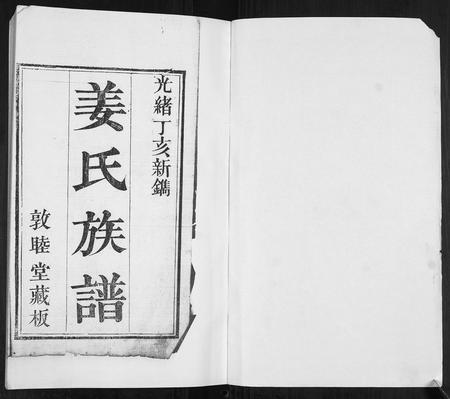 光緒丁亥新鐫
姜氏族譜
敦睦堂藏板